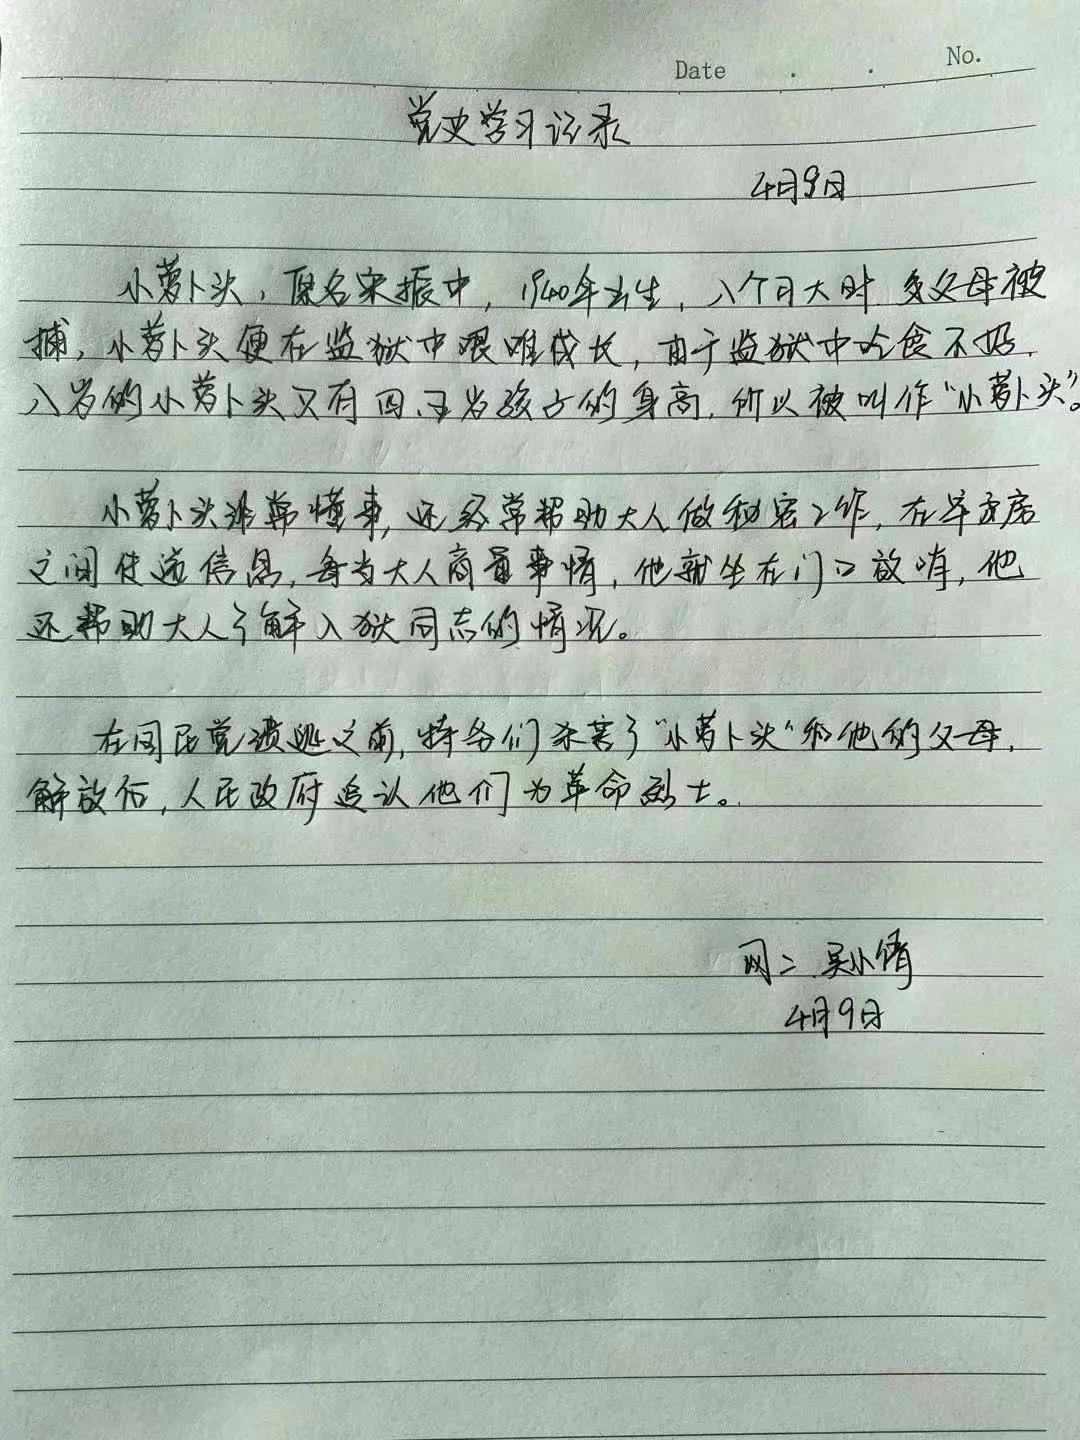 Date . . No.
党史学习记录
4月9日
小萝卜头，原名宋振中，1940年出生，八个月大时 父母被
捕，小萝卜头便在监狱中艰难成长，由于监狱中伙食不好，
八岁的小萝卜头只有四、五岁孩子的身高，所以被叫作“小萝卜头”。
小萝卜头非常懂事，还经常帮助大人做秘密工作，在牢房
之间传递信息，每当大人商量事情，他就坐在门口放哨，他
还帮助大人了解入狱同志的情况。
在国民党溃逃之前，特务们杀害了“小萝卜头”和他的父母，
解放后，人民政府追认他们为革命烈士。
网二 吴小倩
4月9日